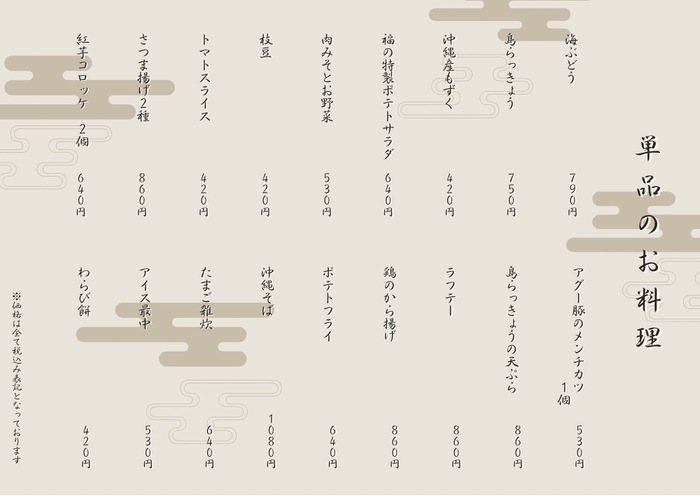 単品のお料理
海ぶどう 790円
島らっきょう 750円
沖縄産もずく 420円
福の特製ポテトサラダ 640円
肉みそとお野菜 530円
枝豆 420円
トマトスライス 420円
さつま揚げ2種 860円
紅芋コロッケ 2個 640円
アグー豚のメンチカツ 1個 530円
島らっきょうの天ぷら 860円
ラフテー 860円
鶏のから揚げ 860円
ポテトフライ 640円
沖縄そば 1080円
たまご雑炊 640円
アイス最中 530円
わらび餅 420円
※価格は全て税込み表記となっております